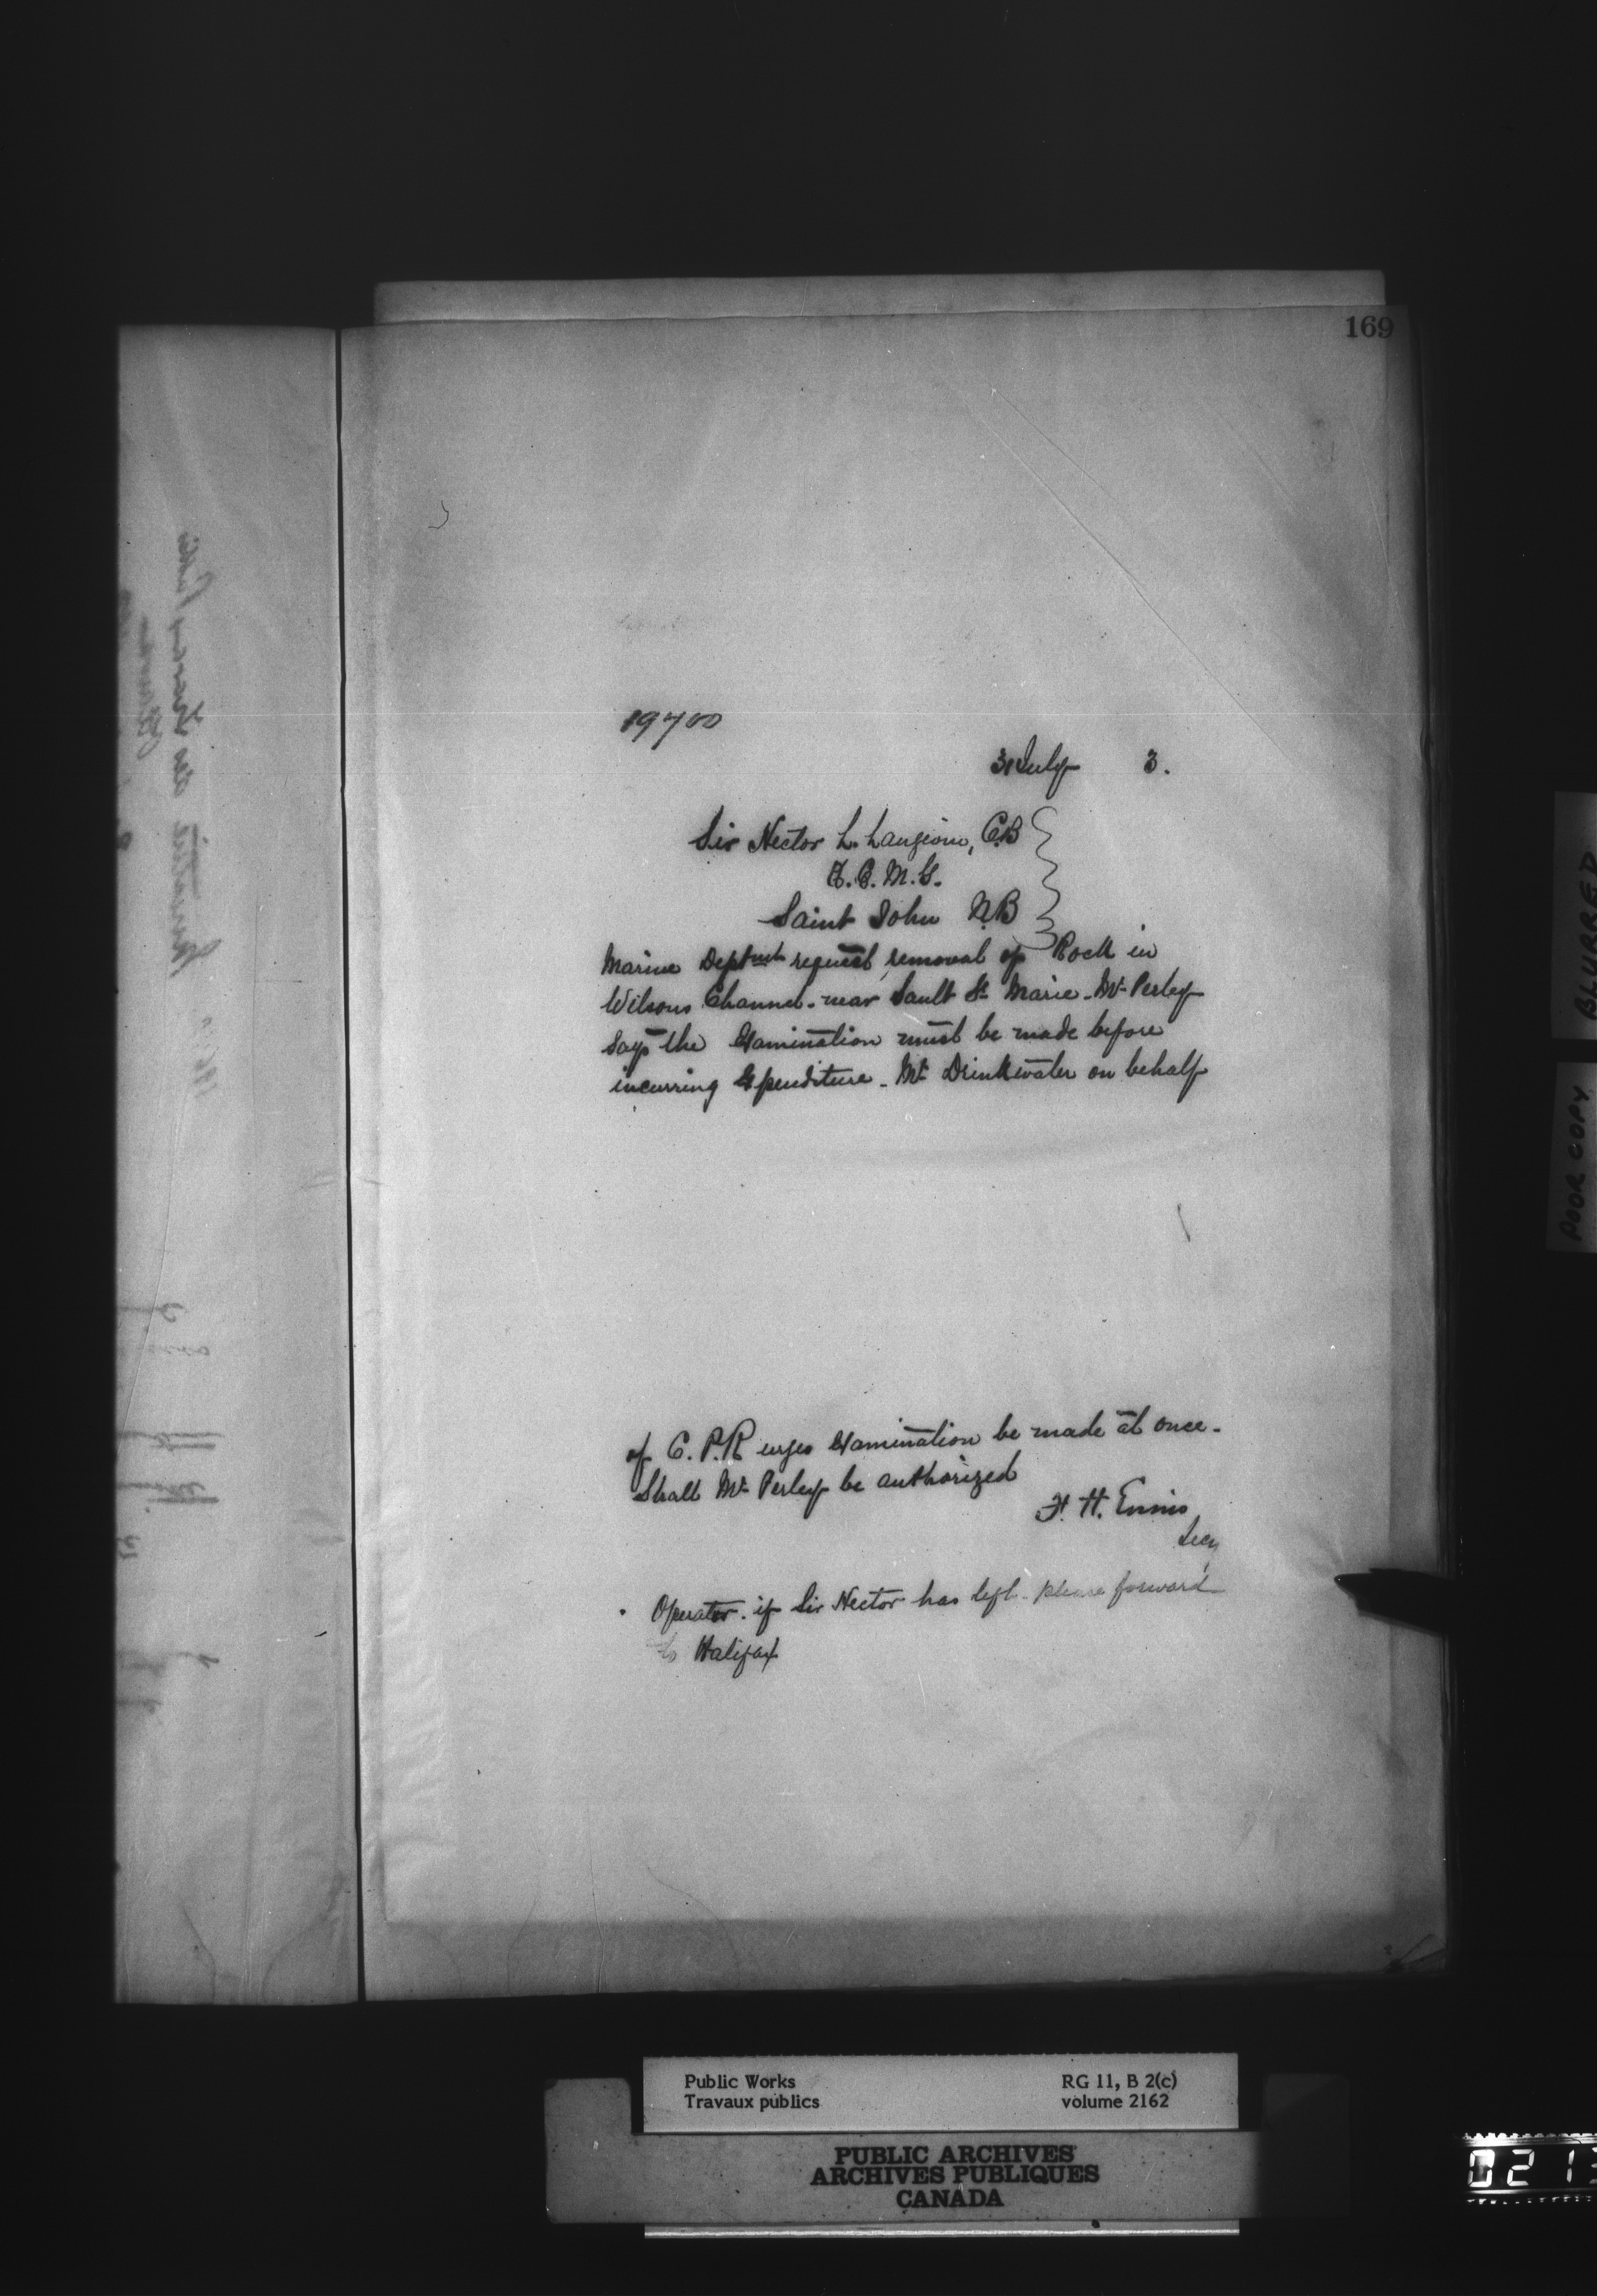 169
19700
31 July 3.
Sir Hector L. Langevin, C.B
K.C.M.G.
Saint John N.B
Marine Deptmt request removal of Rock in
Wilsons Channel - near Sault Ste Marie - Mr Perley
says the Examination must be made before
incurring Expenditure - Mr Drinkwater on behalf
of C.P.R urges Examination be made at once -
Shall Mr Perley be authorized
F. H. Ennis
Secy
Operator - if Sir Hector has left - please forward
to Halifax
BLURRED
POOR COPY
Public Works
Travaux publics
RG 11, B 2(c)
volume 2162
PUBLIC ARCHIVES
ARCHIVES PUBLIQUES
CANADA